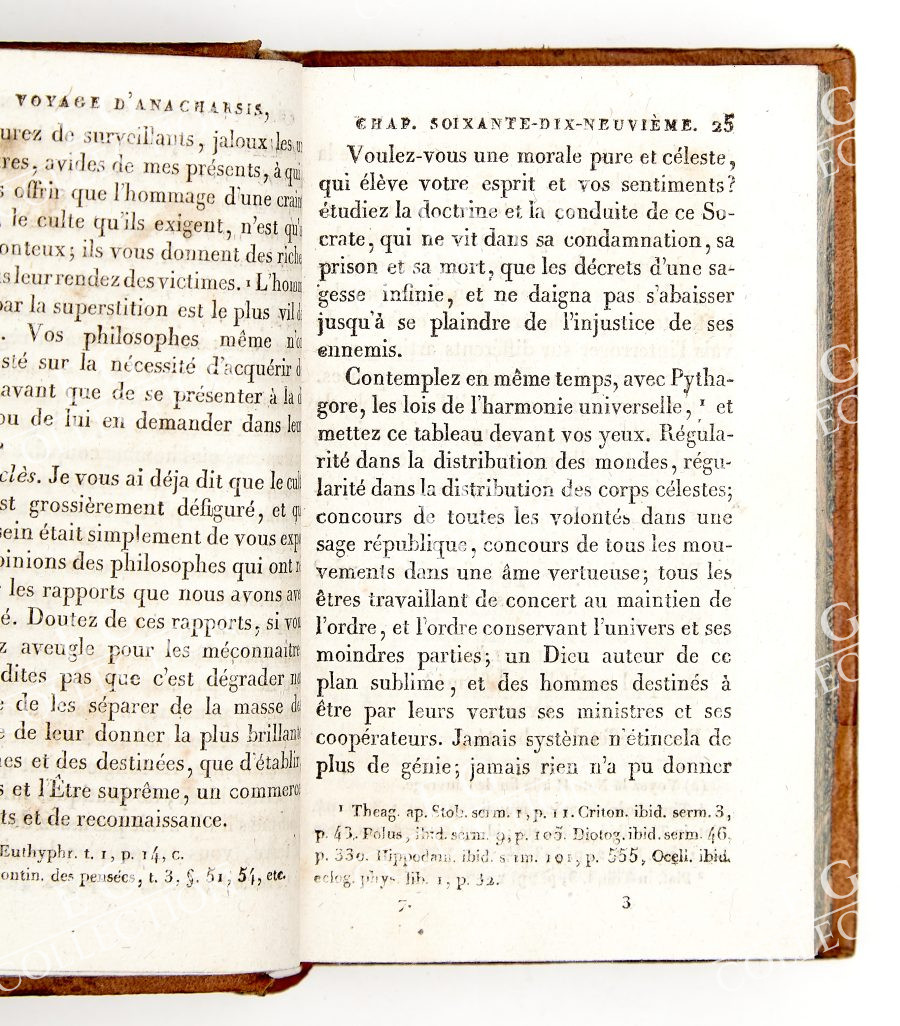 VOYAGE D'ANACHARSIS,
urez de surveillants, jaloux les
res, avides de mes présents, à qui
s offrir que l'hommage d'une
le culte qu'ils exigent, n'est
onteux; ils vous donnent des
s leur rendez des victimes. 1
par la superstition est le plus vil
. Vos philosophes même
sté sur la nécessité d'acquérir
avant que de se présenter à la
ou de lui en demander dans
clès. Je vous ai déja dit que le
st grossièrement défiguré, et
sein était simplement de vous
pinions des philosophes qui ont
les rapports que nous avons
é. Doutez de ces rapports, si
z aveugle pour les méconnaître
dites pas que c'est dégrader
e de les séparer de la masse
e de leur donner la plus brillante
nes et des destinées, que d'établir
s et l'Être suprême, un commerce
ts et de reconnaissance.
Euthyphr. t. 1, p. 14, c.
ontin. des pensées, t. 3, §. 51, 54, etc.
CHAP. SOIXANTE-DIX-NEUVIÈME. 25
Voulez-vous une morale pure et céleste,
qui élève votre esprit et vos sentiments?
étudiez la doctrine et la conduite de ce So-
crate, qui ne vit dans sa condamnation, sa
prison et sa mort, que les décrets d'une sa-
gesse infinie, et ne daigna pas s'abaisser
jusqu'à se plaindre de l'injustice de ses
ennemis.
Contemplez en même temps, avec Pytha-
gore, les lois de l'harmonie universelle, 1 et
mettez ce tableau devant vos yeux. Régula-
rité dans la distribution des mondes, régu-
larité dans la distribution des corps célestes;
concours de toutes les volontés dans une
sage république, concours de tous les mou-
vements dans une âme vertueuse; tous les
êtres travaillant de concert au maintien de
l'ordre, et l'ordre conservant l'univers et ses
moindres parties; un Dieu auteur de ce
plan sublime, et des hommes destinés à
être par leurs vertus ses ministres et ses
coopérateurs. Jamais système n'étincela de
plus de génie; jamais rien n'a pu donner
1 Theag. ap. Stob. serm. 1, p. 11. Criton. ibid. serm. 3,
p. 43. Polus, ibid. serm. 9, p. 105. Diotog. ibid. serm. 46,
p. 330. Hippodam. ibid. serm. 101, p. 555, Ocell. ibid.
eclog. phys. lib. 1, p. 32.
7. 3